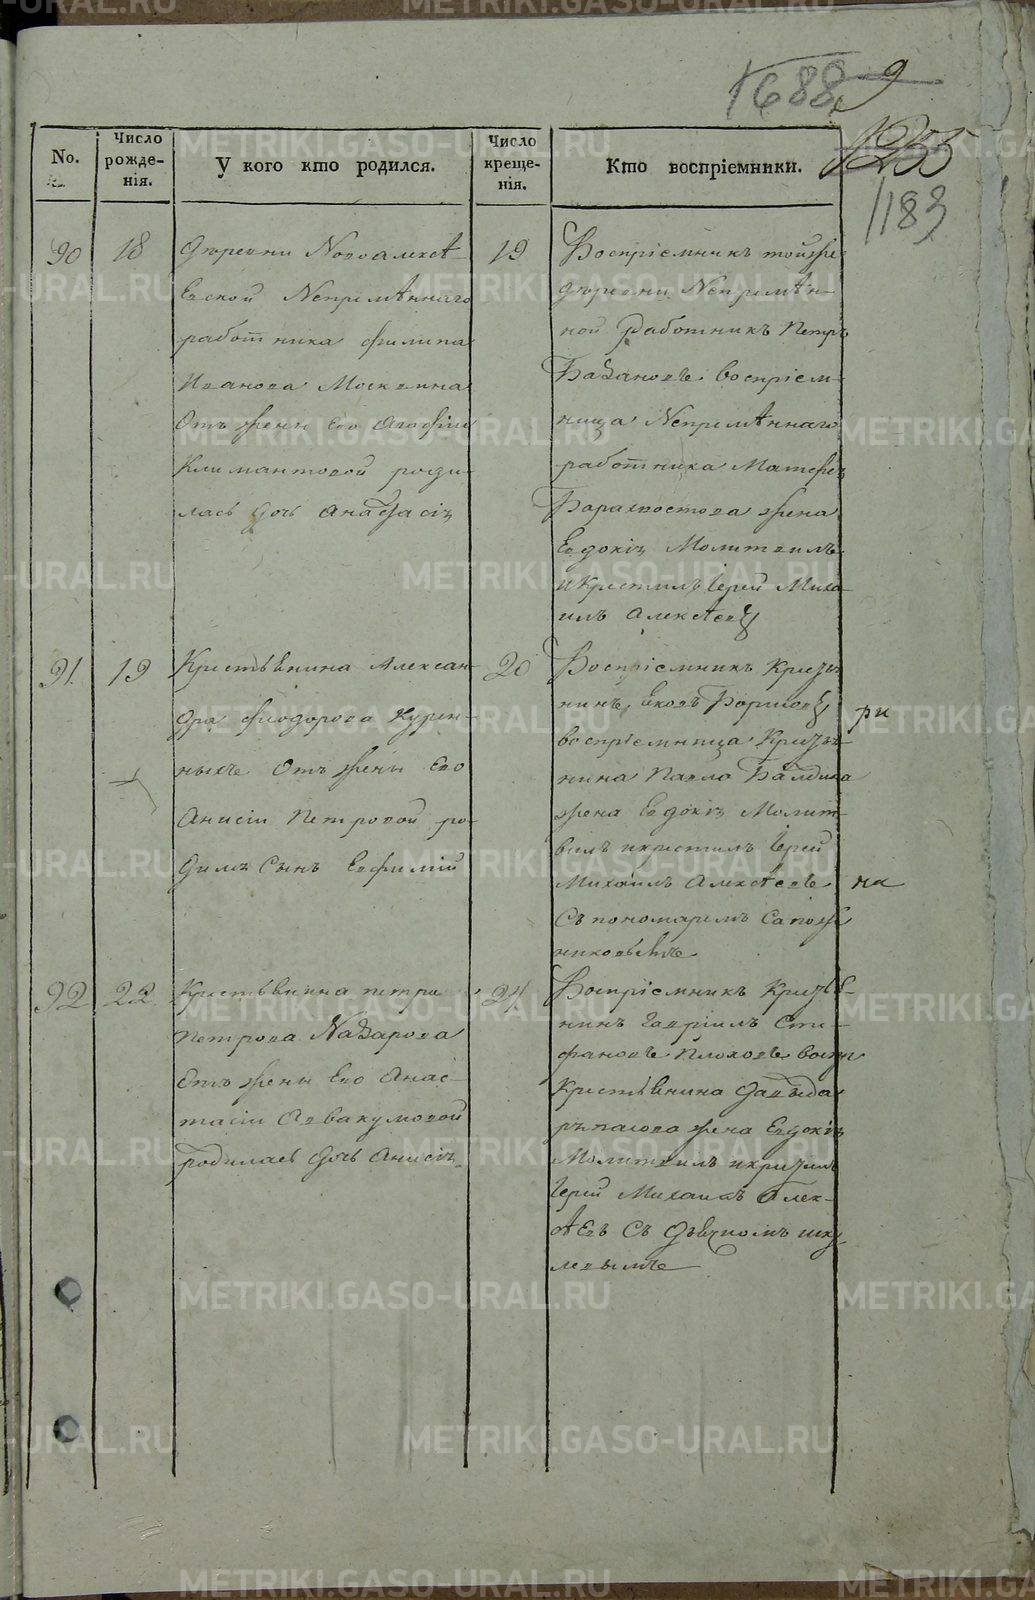 1688
9
1255
1183
No.
Число рожде-нія.
У кого кто родился.
Число креще-нія.
Кто воспріемники.
90
18
Деревни Новоалексѣ
Евской Непримѣннаго
работника Филипа
Иванова Москвина
Отъ жены Его Агафіи
Климантовой роди-
лась дочь Анастасія
19
Воспріемникъ тойже
деревни Непримѣн-
ной Работникъ Петръ
Базановъ воспріем-
ница Непримѣннаго
работника Матфея
Барахвостова жена
Евдокія Молитвилъ
и Крестилъ Іерей Миха-
илъ Алексѣевъ
91.
19
Крестьянина Алексан-
дра Феодорова Курен-
ныхъ Отъ жены Его
Анисіи Петровой ро-
дилъ Сынъ Евфимій
20
Воспріемникъ
воспріемница
нина Павла Балдина
жена Евдокія Молит-
вилъ икрестилъ Іерей
Михаилъ Алексѣевъ
Съ пономаремъ Сапож
никовымъ
ри
на
92
22
Крестьянина петра
Петрова Назарова
Отъ жены Его Анас-
тасіи Аввакумовой
родилась Дочь Анисія
24
Воспріемникъ
нинъ Гавріилъ Сти-
фановъ Плоховъ воспр
Крестьянина Давыда
жена Евдокія
Молитвилъ
Іерей Михаилъ Алек-
ѣевъ Съ Дьячкомъ
METRIKI.GASO-URAL.RU